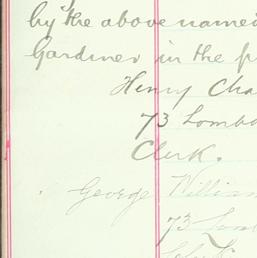 by the above named
Gardiner in the p
Henry Cha
73 Lomba
Clerk.
George William
73 Lom
Clerk